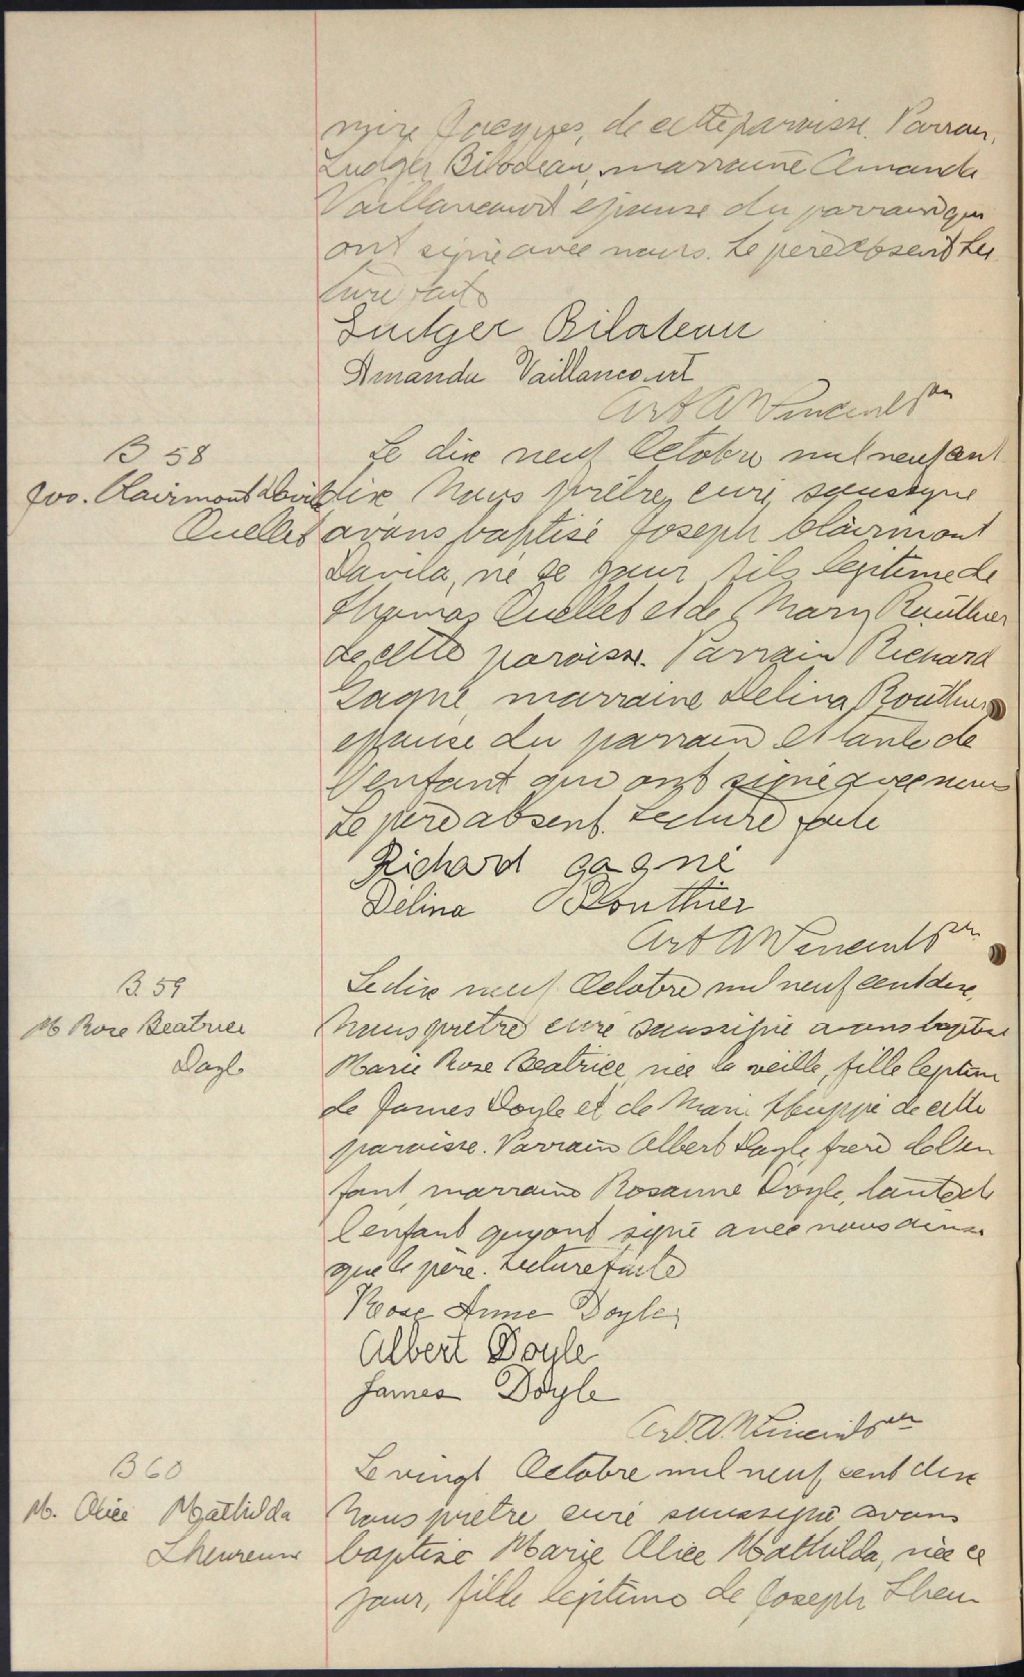 mire Jacques, de cette paroisse. Parrain,
Ludger Bilodeau, marraine Amanda
Vaillancourt épouse du parrain qui
ont signé avec nous. Le père absent Lec
ture faite
Ludger Bilodeau
Amanda Vaillancourt
Art A Vincent ptre
B 58
Jos. Clairmont Davila
Ouellet
Le dix neuf Octobre mil neuf cent
dix Nous prêtre curé soussigné
avons baptisé Joseph Clairmont
Davila, né ce jour fils légitime de
Thomas Ouellet et de Mary Routhier
de cette paroisse. Parrain Richard
Gagné, marraine Delina Routhier
épouse du parrain et tante de
l'enfant qui ont signé avec nous
Le père absent. Lecture faite
Richard gagné
Délina Routhier
Art A Vincent ptre
B. 59
M Rose Beatrice
Doyle
Le dix neuf Octobre mil neuf cent dix,
Nous prêtre curé soussigné avons baptisé
Marie Rose Beatrice, née la veille, fille légitime
de James Doyle et de Marie Huppé de cette
paroisse. Parrain Albert Doyle, frère de l'en
fant, marraine Rosanne Doyle, tante de
l'enfant qui ont signé avec nous ainsi
que le père. Lecture faite
Rose Anne Doyle
Albert Doyle
James Doyle
Art. A. Vincent ptre
B 60
M. Alice Mathilda
Lheureux
Le vingt Octobre mil neuf cent dix
Nous prêtre curé soussigné avons
baptisé Marie Alice Mathilda, née ce
jour, fille légitime de Joseph Lheu